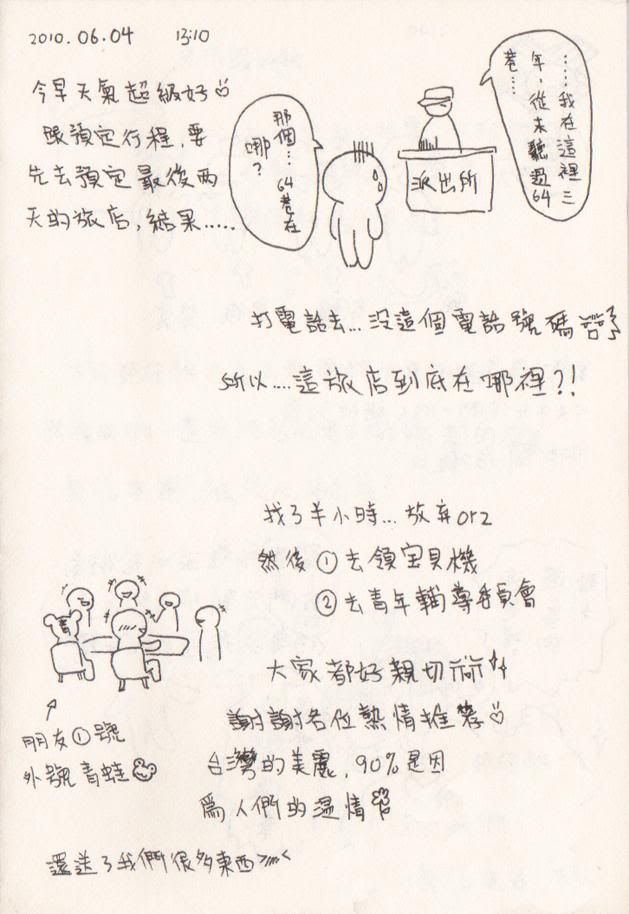 2010.06.04 13:10
今早天氣超級好
跟預定行程,要
先去預定最後兩
天的旅店,結果.....
那個…64巷在
哪?
……我在這裡三
年,從未聽過64
巷……
派出所
打電話去…沒這個電話號碼
所以....這旅店到底在哪裡?!
找了半小時…放弃orz
然後①去領宝貝機
②去青年輔導委員會
大家都好親切
謝謝各位熱情推薦
台灣的美麗,90%是因
為人們的溫情
青
朋友①號
外號青蛙
還送了我們很多東西>///<